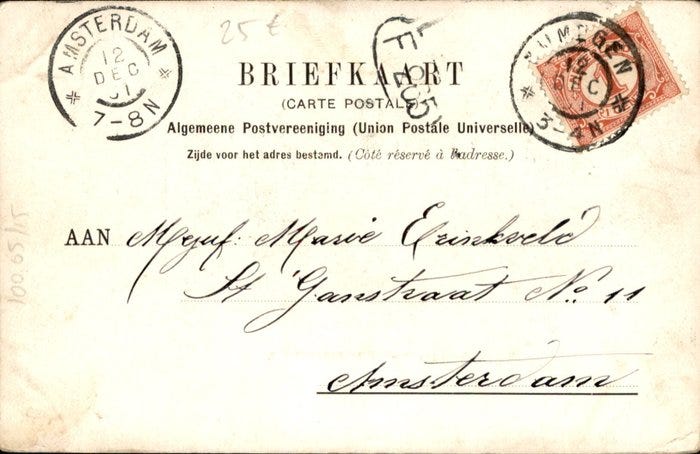 AMSTERDAM
12
DEC
01
7-8N
25 €
NIJMEGEN
12
DEC
3-4N
BRIEFKAART
(CARTE POSTALE)
Algemeene Postvereeniging (Union Postale Universelle)
Zijde voor het adres bestemd. (Côté réservé à l'adresse.)
AAN Mejuf. Marie
St Janstraat No. 11
Amsterdam
100.05/15